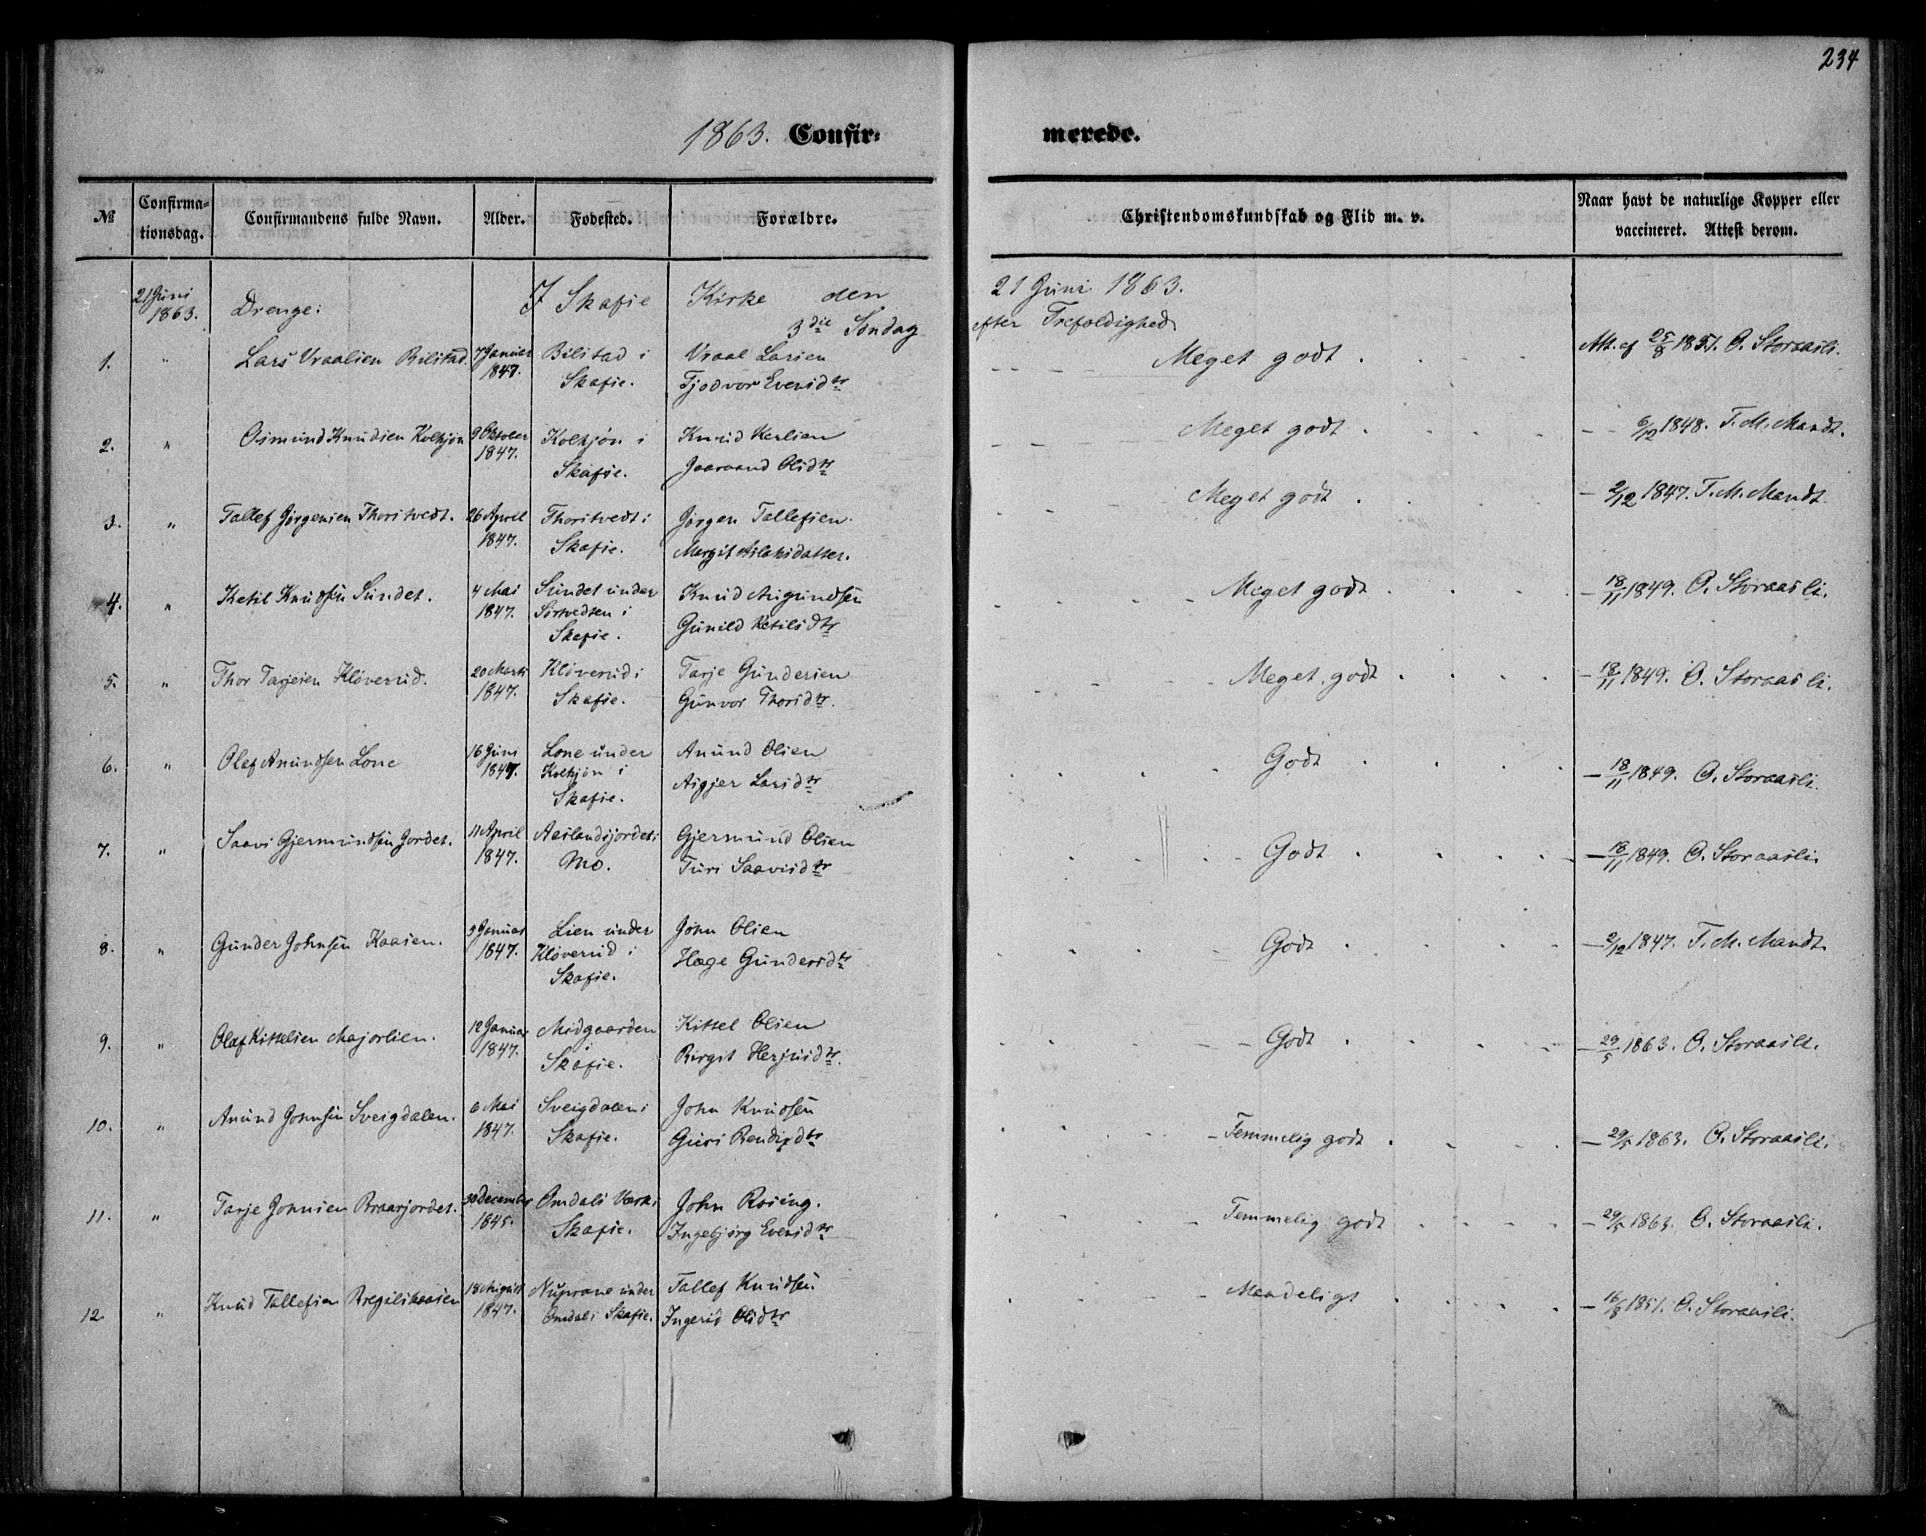 234
1863. Confir= merede.
№ Confirma-tionsdag. Confirmandens fulde Navn. Alder. Fødested. Forældre. Christendomskundskab og Flid m. v. Naar havt de naturlige Kopper eller vaccineret. Attest derom.
21 Juni 1863. Drenge: I Skafse Kirke den 21 Juni 1863.
3die Søndag efter Trefoldighed
1. " Lars Vraalsen Bilstad. 7 Januar Bilstad i Vraal Larsen Meget godt Att. af 25/8 1851. O. Storaasli.
1847. Skafse. Tjodvor Evensdtr
2. " Osmund Knudsen Kolhjøn 9 Oktober Kolhjøn i Knud Meget godt – 6/12 1848. T. M. Mandt.
1847. Skafse. Olsdtr
3. " Tallef Jørgensen Thoristvedt. 26 April Thoristvedt i Jørgen Tallefsen. Meget godt – 2/12 1847. T. M. Mandt.
1847. Skafse. Margit Aslaksdatter.
4. " Ketil Knudsen Sundet. 4 Mai Sundet under Knud Augundsen Meget godt – 18/11 1849. O. Storaasli.
1847. i Gunild Ketilsdtr
Skafse.
5. " Thor Tarjeisen Kløverud. 20 Marts Kløverud i Tarje Gundersen Meget godt – 18/11 1849. O. Storaasli.
1847. Skafse. Gunvor Thorsdtr.
6. " Olaf Anundsen Lone 16 Juni Lone under Anund Olsen Godt – 18/11 1849. O. Storaasli.
1847. Kolhjøn i Larsdtr
Skafse.
7. " Saavi Gjermundsen Jordet. 11 April Aaslandsjordet i Gjermund Olsen Godt – 18/11 1849. O. Storaasli.
1847. Mo. Turi Saavisdtr
8. " Gunder Johnsen Kaasen. 9 Januar Lien under John Olsen Godt – 2/12 1847. T. M. Mandt.
1847. Kløverud i Hæge Gundersdtr
Skafse.
9. " Olaf Kittelsen Majorlien. 12 Januar Midgaarden Kittel Olsen Godt – 29/5 1863. O. Storaasli.
1847. i Skafse. Birgit Herjusdtr.
10. " Anund Johnsen Sveigdalen. 6 Mai Sveigdalen i John Knudsen Temmelig godt – 29/5 1863. O. Storaasli.
1847. Skafse. Guri Bendixdtr
11. " Tarje Johnsen Braarjordet. 30 December Omdals Værk i John Rosing. Temmelig godt – 29/5 1863. O. Storaasli.
1845. Skafse. Ingebjørg Evensdtr
12 " Knud Tallefsen 18 August under Tallef Knudsen Maadeligt – 16/8 1851. O. Storaasli.
1847. Omdal i Skafse. Ingerid Olsdtr